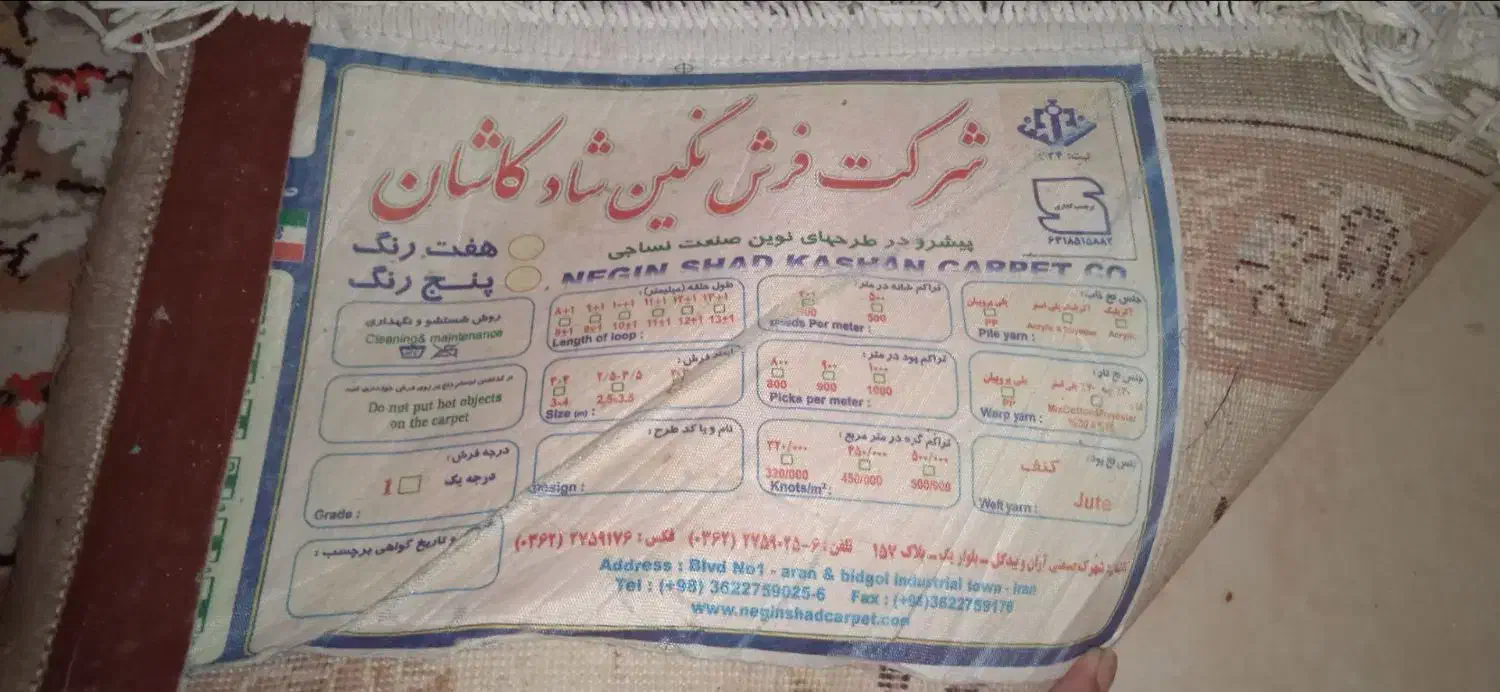 شرکت فرش نگین شاد کاشان
پیشرو در طرحهای نوین صنعت نساجی
NEGIN SHAD KASHAN CARPET CO.
هفت رنگ
پنج رنگ
برچسب گذاری
۶۳۱۸۵۱۵۸۸۲
جنس نخ خاب:
پلی پروپیلن
اکریلیک
PP
Acrylic
Pile yarn :
تراکم شانه در متر:
۵۰۰
500
Per meter :
طول حلقه (میلیمتر):
۸+۱ ۹+۱ ۱۰+۱ ۱۱+۱ ۱۲+۱ ۱۳+۱
8±1 9±1 10±1 11±1 12±1 13±1
Length of loop :
روش شستشو و نگهداری
Cleaning& maintenance
جنس نخ تار:
پلی پروپیلن
PP
Warp yarn :
تراکم پود در متر:
۸۰۰ ۹۰۰ ۱۰۰۰
800 900 1000
Picks per meter :
ابعاد فرش:
۳-۴ ۲/۵-۳/۵
3-4 2.5-3.5
Size (m) :
Do not put hot objects
on the carpet
جنس نخ پود:
کنف
Jute
Weft yarn :
تراکم گره در متر مربع:
۳۲۰/۰۰۰ ۴۵۰/۰۰۰ ۵۰۰/۰۰۰
320/000 450/000 500/000
Knots/m²:
نام و یا کد طرح:
Design :
درجه فرش:
درجه یک
1
Grade :
و تاریخ گواهی برچسب :
شهرک صنعتی آران و بیدگل - بلوار یک - پلاک ۱۵۷ تلفن : ۶-۲۷۵۹۰۲۵ (۰۳۶۲) فکس : ۲۷۵۹۱۷۶ (۰۳۶۲)
Address : Blvd No1 - aran & bidgol industrial town - iran
Tel : (+98) 3622759025-6 Fax : (+98)3622759176
www.neginshadcarpet.com